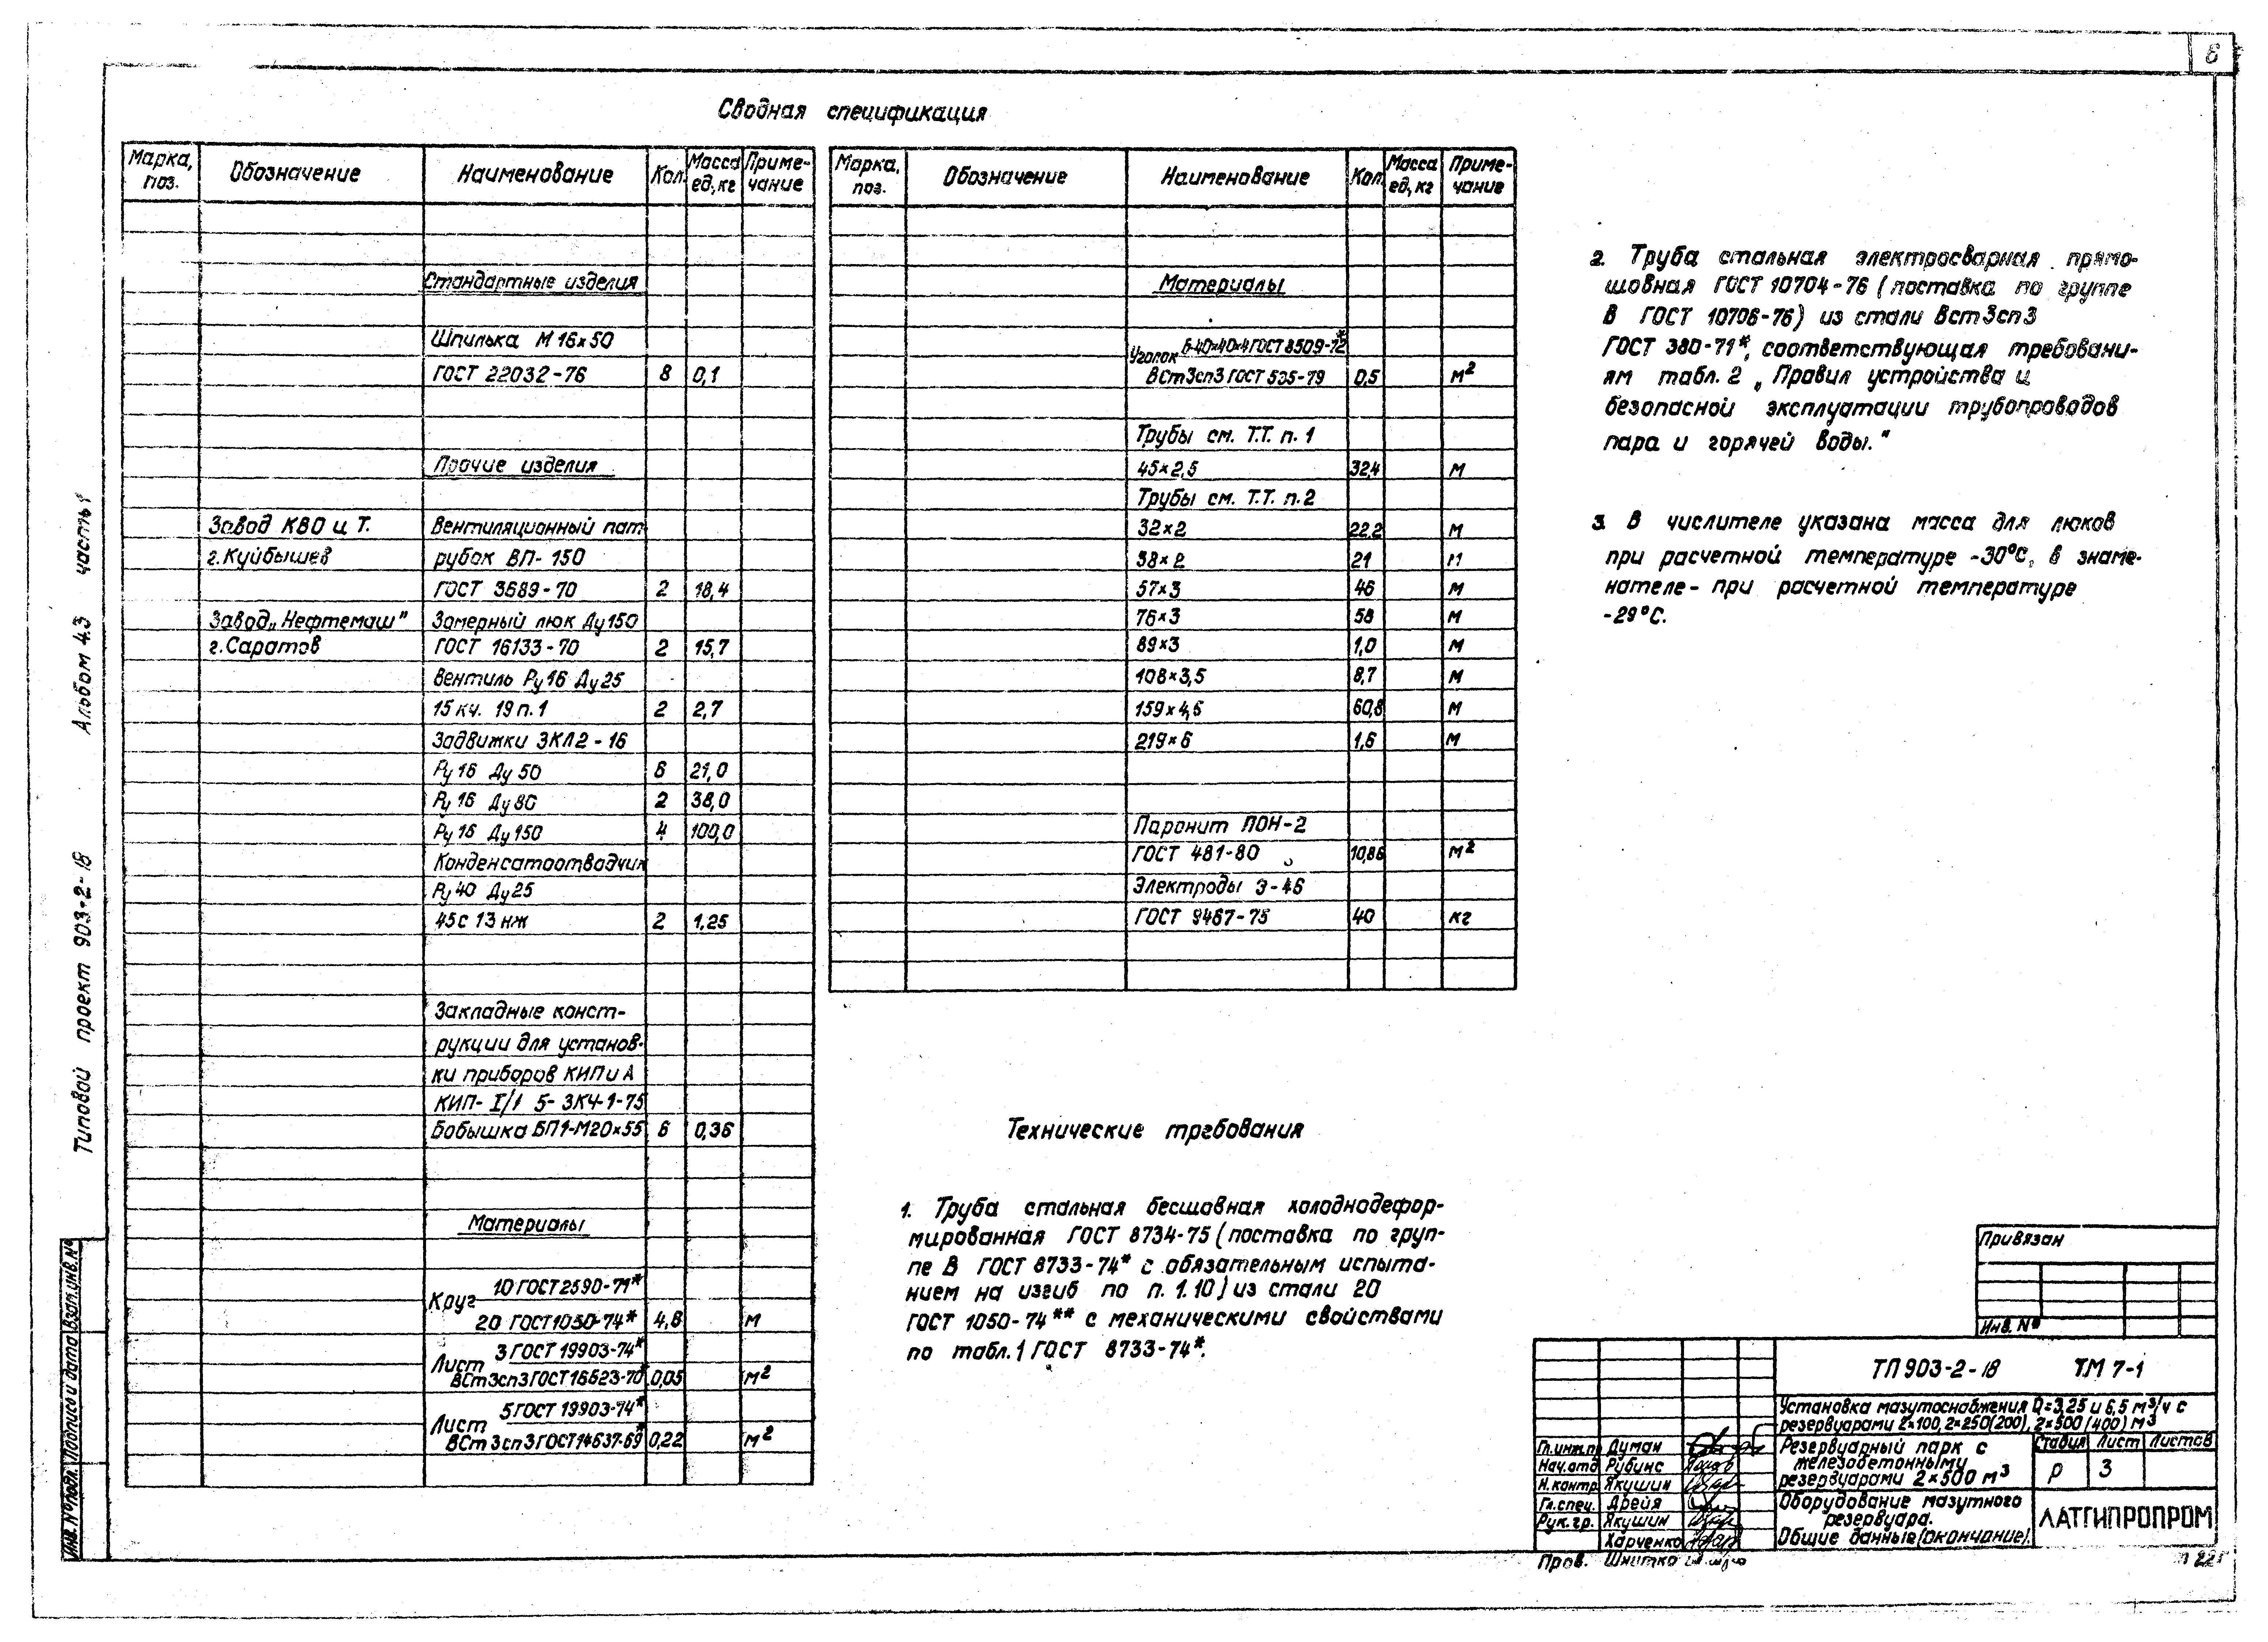 6
Сводная спецификация
Марка, поз. Обозначение Наименование Кол. Масса ед., кг Приме-чание
Стандартные изделия
Шпилька М 16×50
ГОСТ 22032-76 8 0,1
Прочие изделия
Завод КВО и Т. Вентиляционный пат
г.Куйбышев рубок ВП-150
ГОСТ 3689-70 2 18,4
Завод „Нефтемаш" Замерный люк Ду150
г.Саратов ГОСТ 16133-70 2 15,7
Вентиль Ру16 Ду25
15 кч. 19 п.1 2 2,7
Задвижки ЗКЛ2-16
Ру 16 Ду 50 6 21,0
Ру 16 Ду 80 2 38,0
Ру 16 Ду 150 4 100,0
Конденсатоотводчик
Ру 40 Ду25
45с 13 нж 2 1,25
Закладные конст-
рукции для установ-
ки приборов КИП и А
КИП-I/1 5-ЗКЧ-1-75
Бобышка БП1-М20×55 6 0,36
Материалы
Круг 10 ГОСТ 2590-71*
20 ГОСТ 1050-74* 4,8 м
Лист 3 ГОСТ 19903-74*
ВСт3сп3 ГОСТ 16523-70* 0,05 м²
Лист 5 ГОСТ 19903-74*
ВСт3сп3 ГОСТ 14637-69* 0,22 м²
Марка, поз. Обозначение Наименование Кол. Масса ед., кг Приме-чание
Материалы
Уголок Б-40×40×4 ГОСТ 8509-72*
ВСт3сп3 ГОСТ 535-79 0,5 м²
Трубы см. Т.Т. п.1
45×2,5 32,4 м
Трубы см. Т.Т. п.2
32×2 22,2 м
38×2 21 м
57×3 46 м
76×3 58 м
89×3 1,0 м
108×3,5 8,7 м
159×4,5 60,8 м
219×6 1,6 м
Паронит ПОН-2
ГОСТ 481-80 10,86 м²
Электроды Э-46
ГОСТ 9467-75 40 кг
Технические требования
1. Труба стальная бесшовная холоднодефор-
мированная ГОСТ 8734-75 (поставка по груп-
пе В ГОСТ 8733-74* с обязательным испыта-
нием на изгиб по п. 1.10) из стали 20
ГОСТ 1050-74** с механическими свойствами
по табл.1 ГОСТ 8733-74*.
2. Труба стальная электросварная прямо-
шовная ГОСТ 10704-76 (поставка по группе
В ГОСТ 10706-76) из стали Вст3сп3
ГОСТ 380-71*, соответствующая требовани-
ям табл. 2 „Правил устройства и
безопасной эксплуатации трубопроводов
пара и горячей воды."
3. В числителе указана масса для люков
при расчетной температуре -30°С, в знаме-
нателе - при расчетной температуре
-29°С.
Типовой проект 903-2-18 Альбом 4.3 часть 1
Инв. № подл. Подпись и дата Взам.инв.№
Привязан
Инв. №
ТП 903-2-18 ТМ 7-1
Установка мазутоснабжения Q=3,25 и 6,5 м³/ч с
резервуарами 2×100, 2×250(200), 2×500 (400) м³
Гл.инж.п Думан
Нач.отд Рубинс
Н.контр Якушин
Гл.спец. Дрейя
Рук.гр. Якушин
Харченко
Пров. Шнитко
Резервуарный парк с
железобетонными
резервуарами 2×500 м³
Стадия Лист Листов
Р 3
Оборудование мазутного
резервуара.
Общие данные (окончание).
ЛАТГИПРОПРОМ